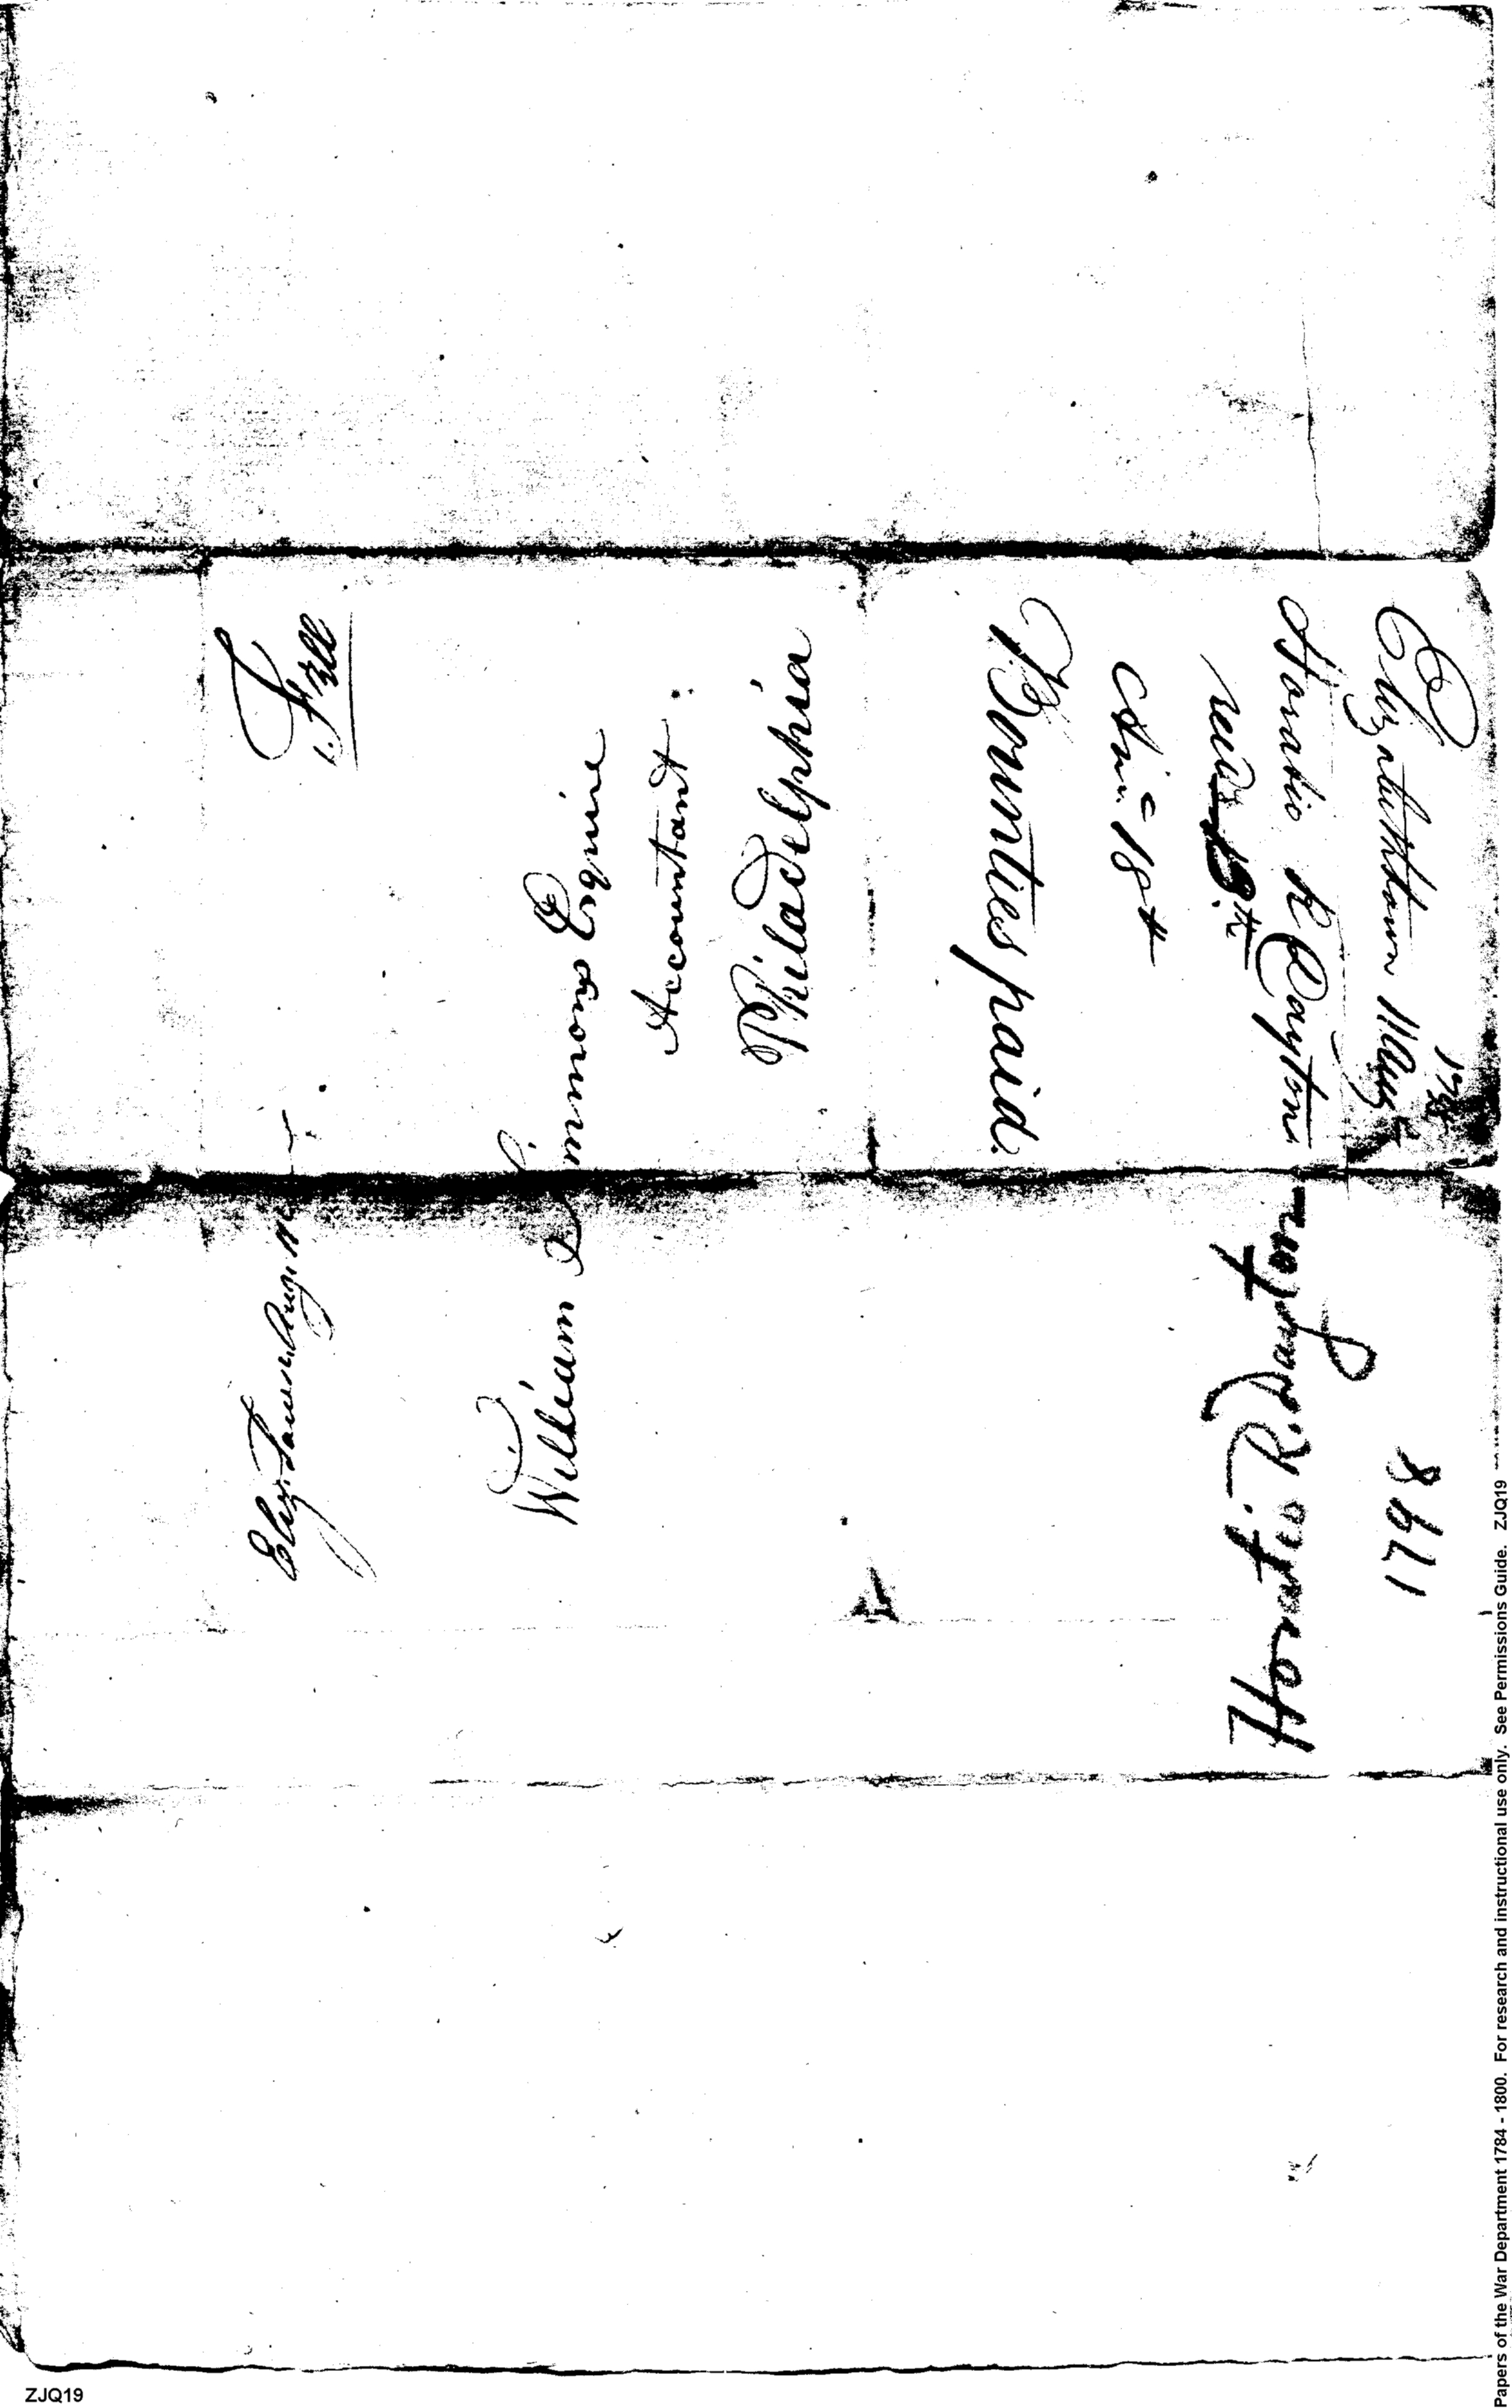 Eliz. Town, Aug. 11
Free
William Simmons Esquire
Accountant
Philadelphia
Elizabethtown 11 Aug
1798
Horatio R Dayton
recd 13th
Ansd 18th
Bounties paid.
1798
Horatio R. Dayton
ZJQ19
Papers of the War Department 1784 - 1800. For research and instructional use only. See Permissions Guide. ZJQ19